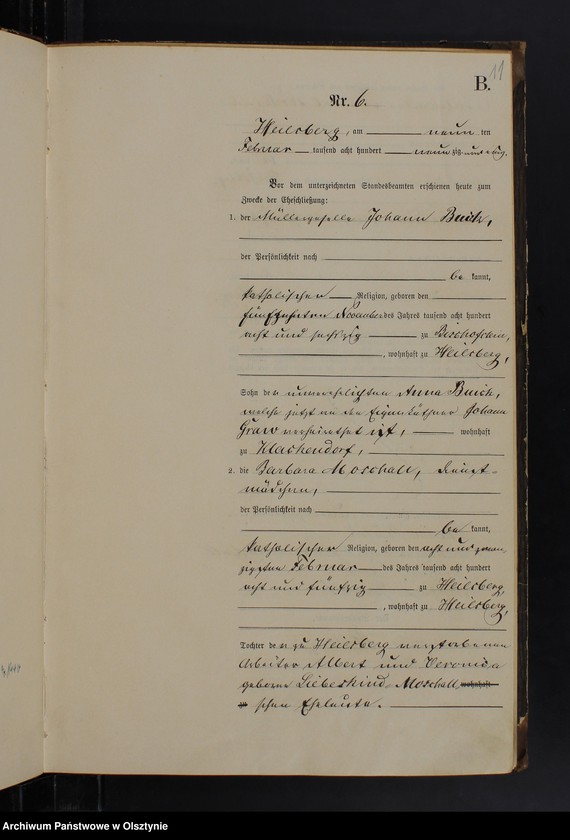 11
B.
Nr. 6.
Heilsberg, am neun ten
Februar tausend acht hundert neun zig und
Vor dem unterzeichneten Standesbeamten erschienen heute zum
Zwecke der Eheschließung:
1. der Müllergeselle Johann Buick,
der Persönlichkeit nach
be kannt,
katholischen Religion, geboren den
fünfzehnten November des Jahres tausend acht hundert
acht und sechszig zu Bischofstein,
, wohnhaft zu Heilsberg,
Sohn der unverehelichten Anna Buick,
welche jetzt an den Eigenkäthner Johann
Graw verheirathet ist, wohnhaft
zu Klackendorf,
2. die Barbara Moschall, Dienst-
mädchen,
der Persönlichkeit nach
be kannt,
katholischer Religion, geboren den acht und zwan
zigsten Februar des Jahres tausend acht hundert
acht und fünfzig zu Heilsberg,
, wohnhaft zu Heilsberg,
Tochter der zu Heilsberg verstorbenen
Arbeiter Albert und Veronica
geborene Liebeskind Moschall wohnhaft
zu schen Eheleute.
Archiwum Państwowe w Olsztynie